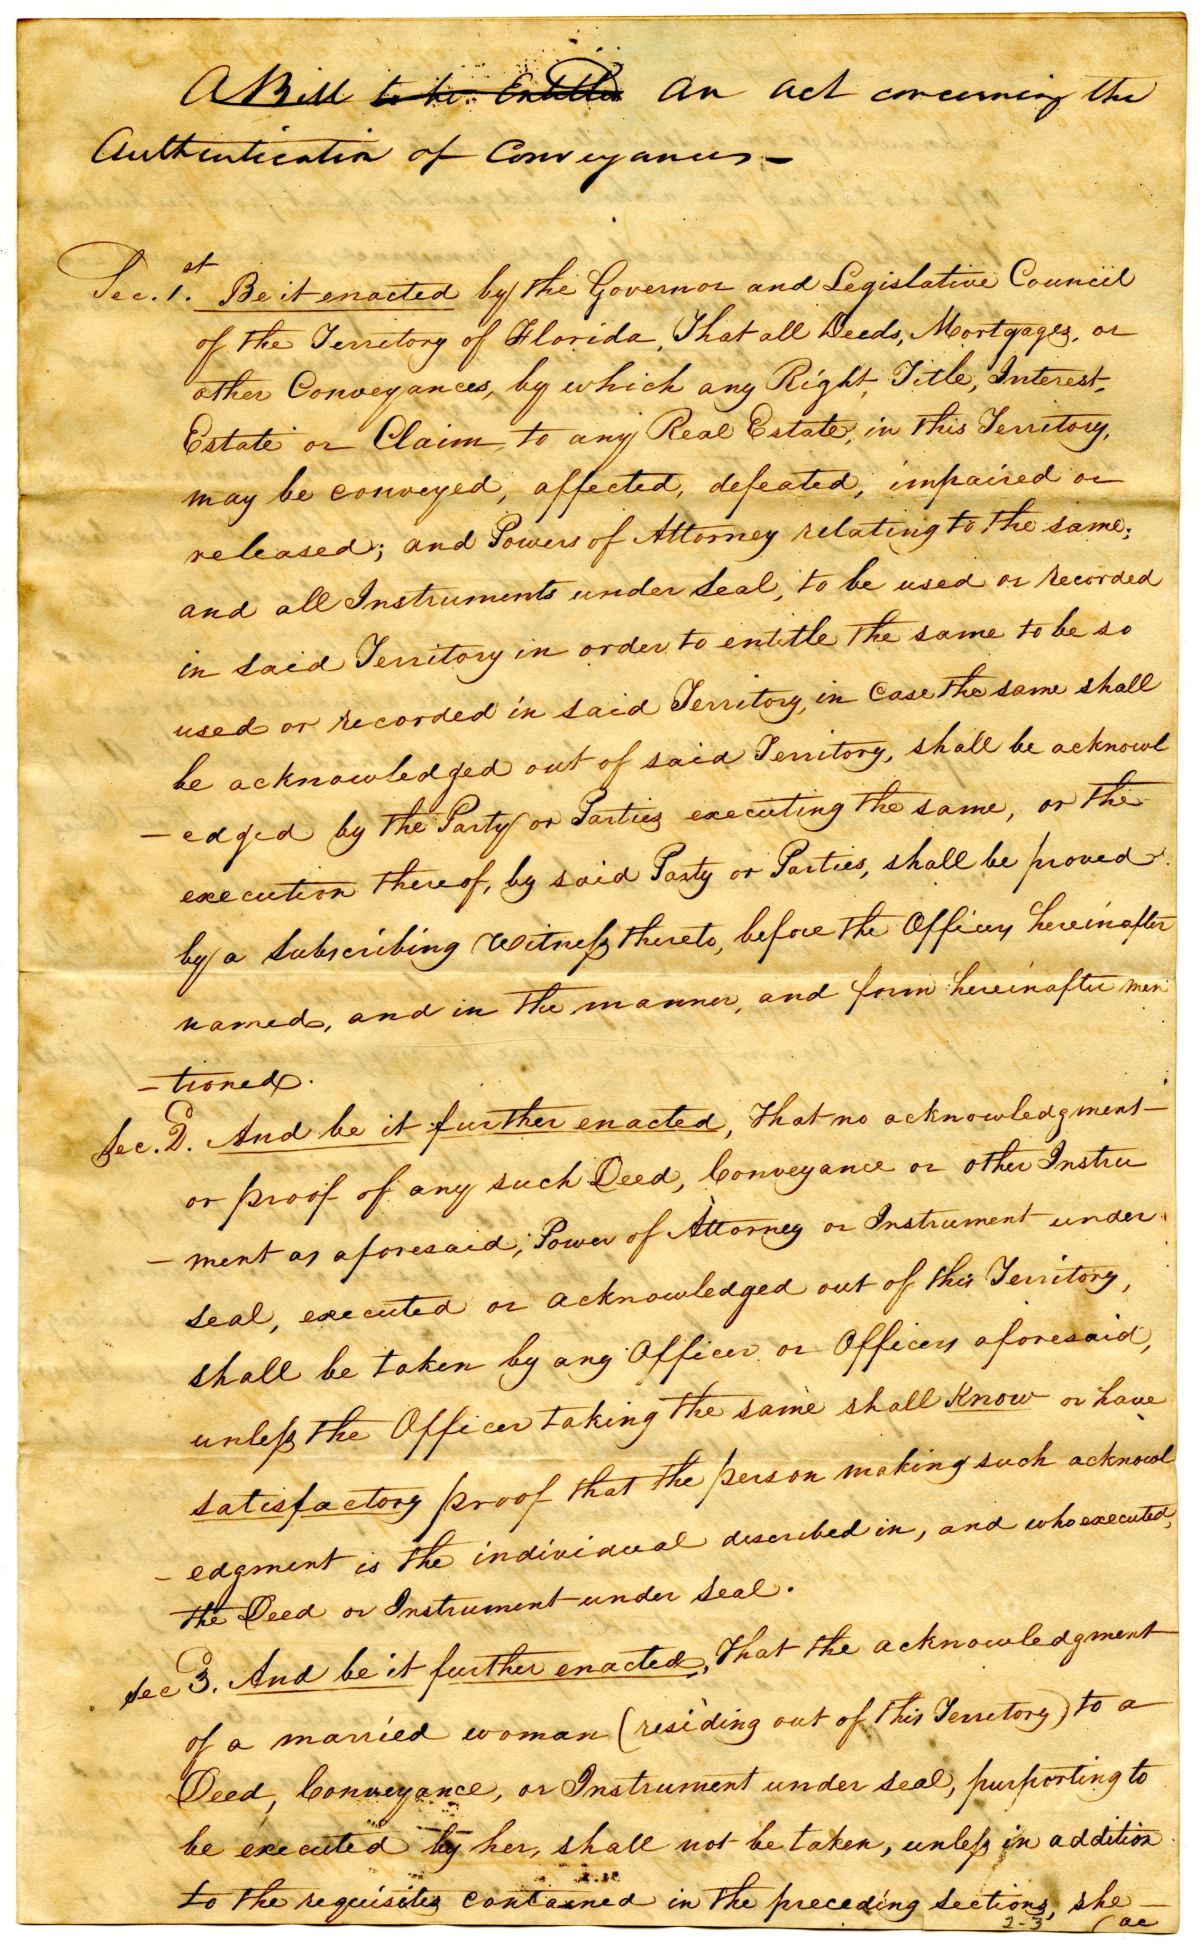 A Bill to be Entitled An act concerning the
Authentication of Conveyances—
Sec. 1st. Be it enacted by the Governor and Legislative Council
of the Territory of Florida, That all Deeds, Mortgages, or
other Conveyances, by which any Right, Title, Interest,
Estate or Claim, to any Real Estate, in this Territory,
may be conveyed, affected, defeated, impaired or
released; and Powers of Attorney relating to the same;
and all Instruments under seal, to be used or recorded
in said Territory in order to entitle the same to be so
used or recorded in said Territory, in case the same shall
be acknowledged out of said Territory, shall be acknowl
-edged by the Party or Parties executing the same, or the
execution thereof, by said Party or Parties, shall be proved
by a subscribing Witness thereto, before the Officers hereinafter
named, and in the manner, and form hereinafter men
-tioned.
Sec. 2. And be it further enacted, That no acknowledgment
or proof of any such Deed, Conveyance or other Instru
-ment as aforesaid, Power of Attorney or Instrument under
seal, executed or acknowledged out of this Territory,
shall be taken by any Officer or Officers aforesaid,
unless the Officer taking the same shall know or have
satisfactory proof that the person making such acknowl
-edgment is the individual described in, and who executed,
the Deed or Instrument under seal.
Sec 3. And be it further enacted, That the acknowledgment
of a married woman (residing out of this Territory) to a
Deed, Conveyance, or Instrument under seal, purporting to
be executed by her, shall not be taken, unless in addition
to the requisites contained in the preceding sections, she
2-3 (ac